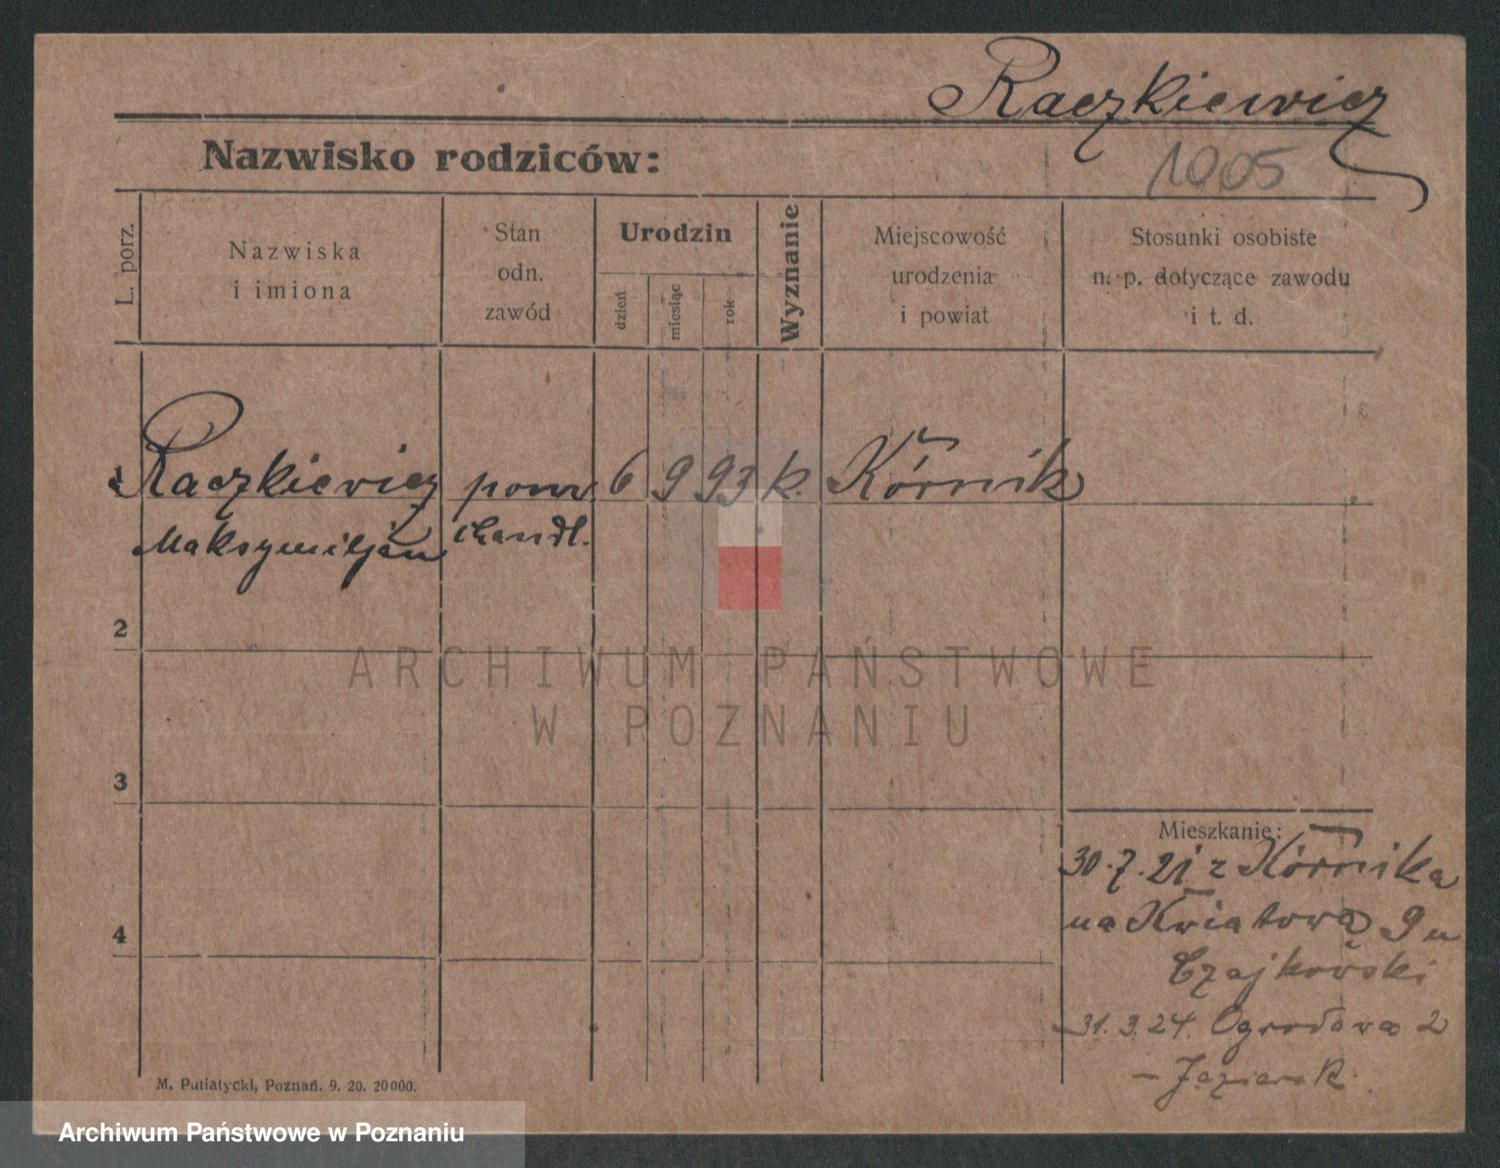 Raczkiewicz
Nazwisko rodziców:
1005
L. porz.
Nazwiska
i imiona
Stan
odn.
zawód
Urodzin
dzień
miesiąc
rok
Wyznanie
Miejscowość
urodzenia
i powiat
Stosunki osobiste
n. p. dotyczące zawodu
i t. d.
1 Raczkiewicz pom 6 9 93 k. Kórnik
Maksymiljan handl.
2
ARCHIWUM PAŃSTWOWE
W POZNANIU
3
Mieszkanie:
30.7.21 z Kórnika
na Kwiatową 9 u
Czajkowski
4
31.3.24. Ogrodowa 2
M. Putiatycki, Poznań. 9. 20. 20000.
Archiwum Państwowe w Poznaniu